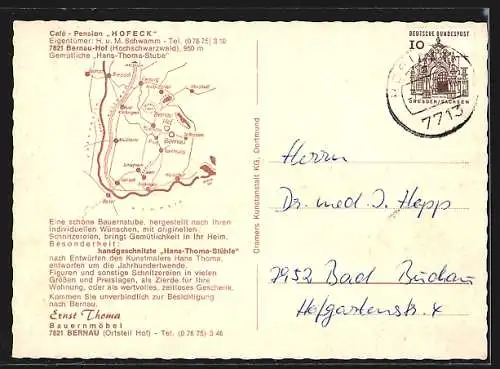 Café - Pension „HOFECK"
Eigentümer: H. u. M. Schwamm - Tel. (0 76 75) 3 10
7821 Bernau-Hof (Hochschwarzwald), 950 m
Gemütliche „Hans-Thoma-Stube"
DEUTSCHE BUNDESPOST
10
DRESDEN/SACHSEN
7713
Bernau
Hof
Bernau
Basel
Eine schöne Bauernstube, hergestellt nach Ihren
individuellen Wünschen, mit originellen
Schnitzereien, bringt Gemütlichkeit in Ihr Heim.
Besonderheit:
handgeschnitzte „Hans-Thoma-Stühle"
nach Entwürfen des Kunstmalers Hans Thoma,
entworfen um die Jahrhundertwende.
Figuren und sonstige Schnitzereien in vielen
Größen und Preislagen, als Zierde für Ihre
Wohnung, oder als wertvolles, zeitloses Geschenk.
Kommen Sie unverbindlich zur Besichtigung
nach Bernau.
Ernst Thoma
Bauernmöbel
7821 BERNAU (Ortsteil Hof) - Tel. (0 76 75) 3 46
Cramers Kunstanstalt KG, Dortmund
Herrn
Dr. med. J. Hepp
7952 Bad Buchau
Hofgartenstr. 4